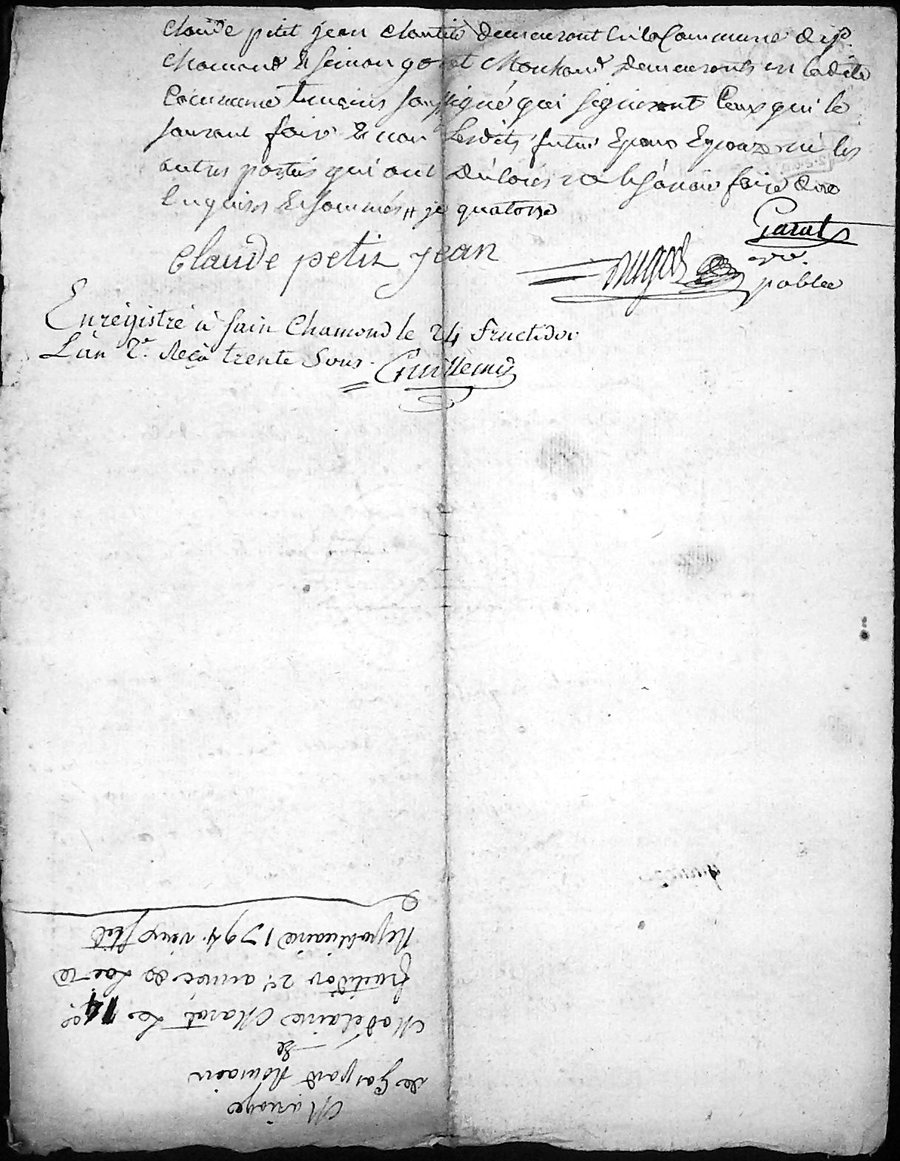 Claude petit jean Cloutier demeurant en la Commune de St
Chamond & Simon goret Mouchand demeurants en ladite
Commune temoins soussigné qui signeront Ceux qui le
sauront faire & non lesdits futurs Epoux Epouze ni les
autres parties qui ont déclarés ne le savoir faire de ce
Enquises & sommés # je quatorze
claude petit jean
Garat
nre.
public
Enregistré à Sain Chamond le 24 Fructidor
L'an 2e. Reçu trente Sous. Guillemin
Mariage
de Gaspard Romain
&
Madelaine Marat Le 14e
fructidor 2e année de L'ere
Republicaine 1794. vieux stil